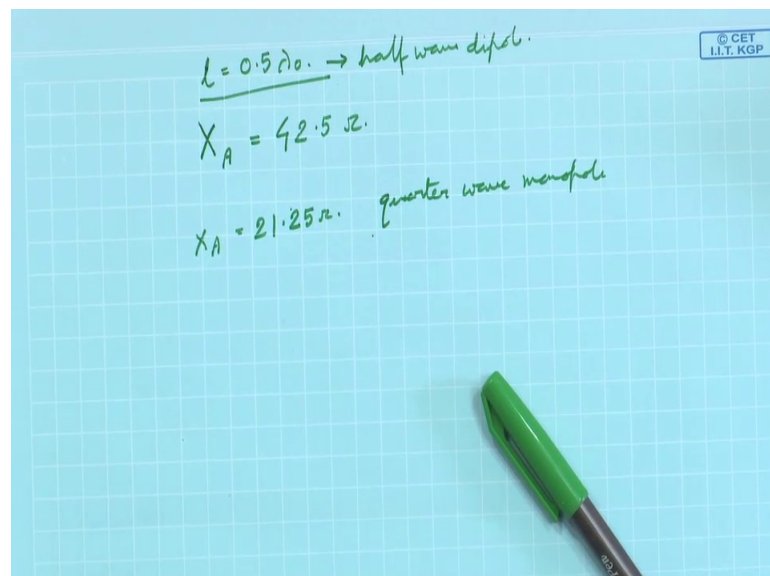 © CET
I.I.T. KGP
l = 0.5 λo. → half wave dipol.
X_A = 42.5 Ω.
X_A = 21.25 Ω. quarter wave monopole